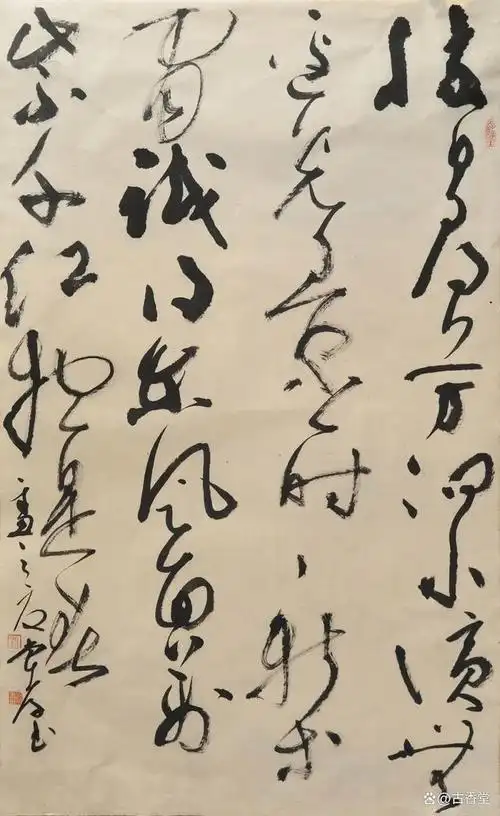 勝日寻芳泗水滨无
边光景一时新等
闲識得东风面万
紫千红総是春
古香堂